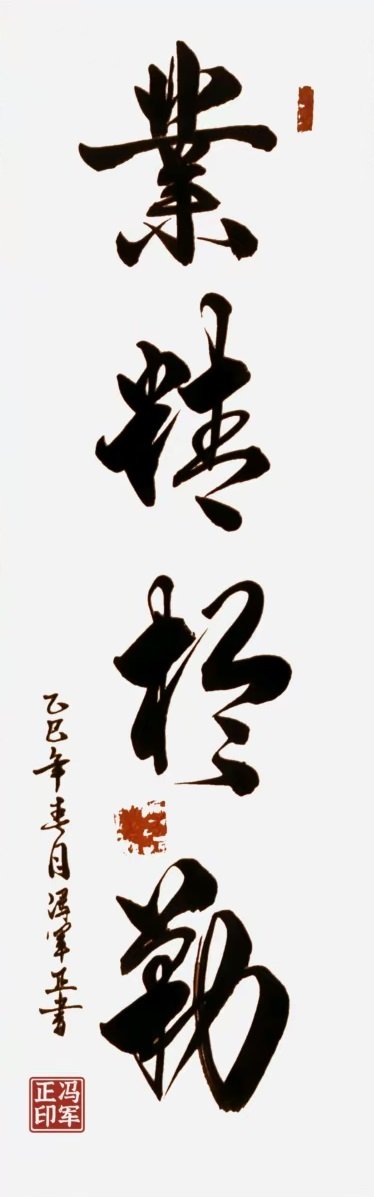 業精於勤
乙巳年春月冯军正書
冯军
正印